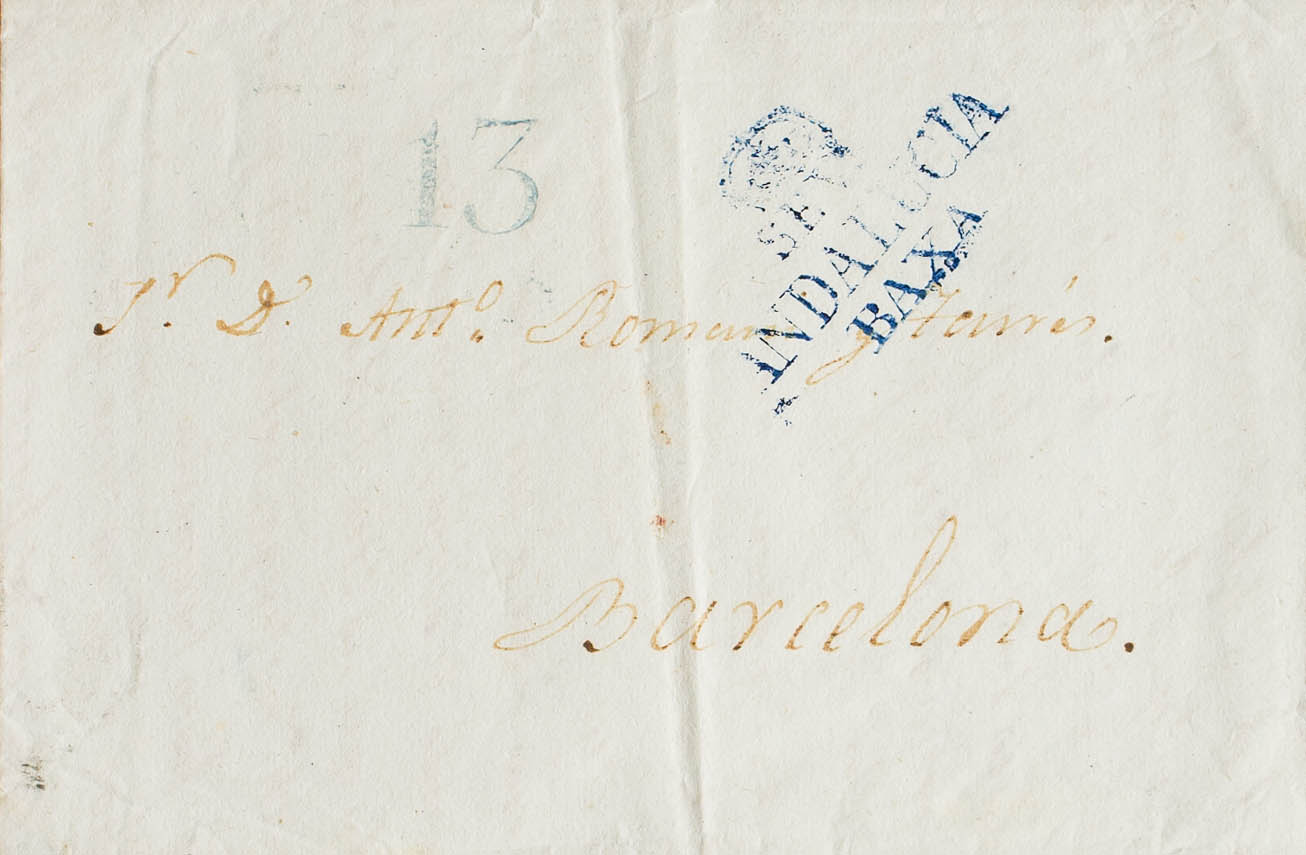 13
SE
ANDALUCIA
BAXA
Sr. D. Antº. Romani y Tarrés.
Barcelona.